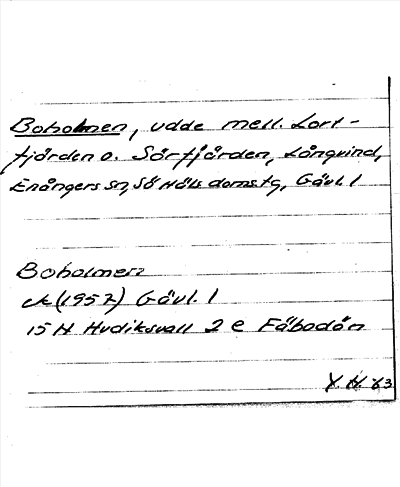 Boholmen, udde mell. Lort-
fjärden o. Sörfjärden, Långvind,
Enångers sn, Sö Häls domstg, Gävl. l
Boholmen
ek (1957) Gävl. l
15 H Hudiksvall 2 e Fäbodön